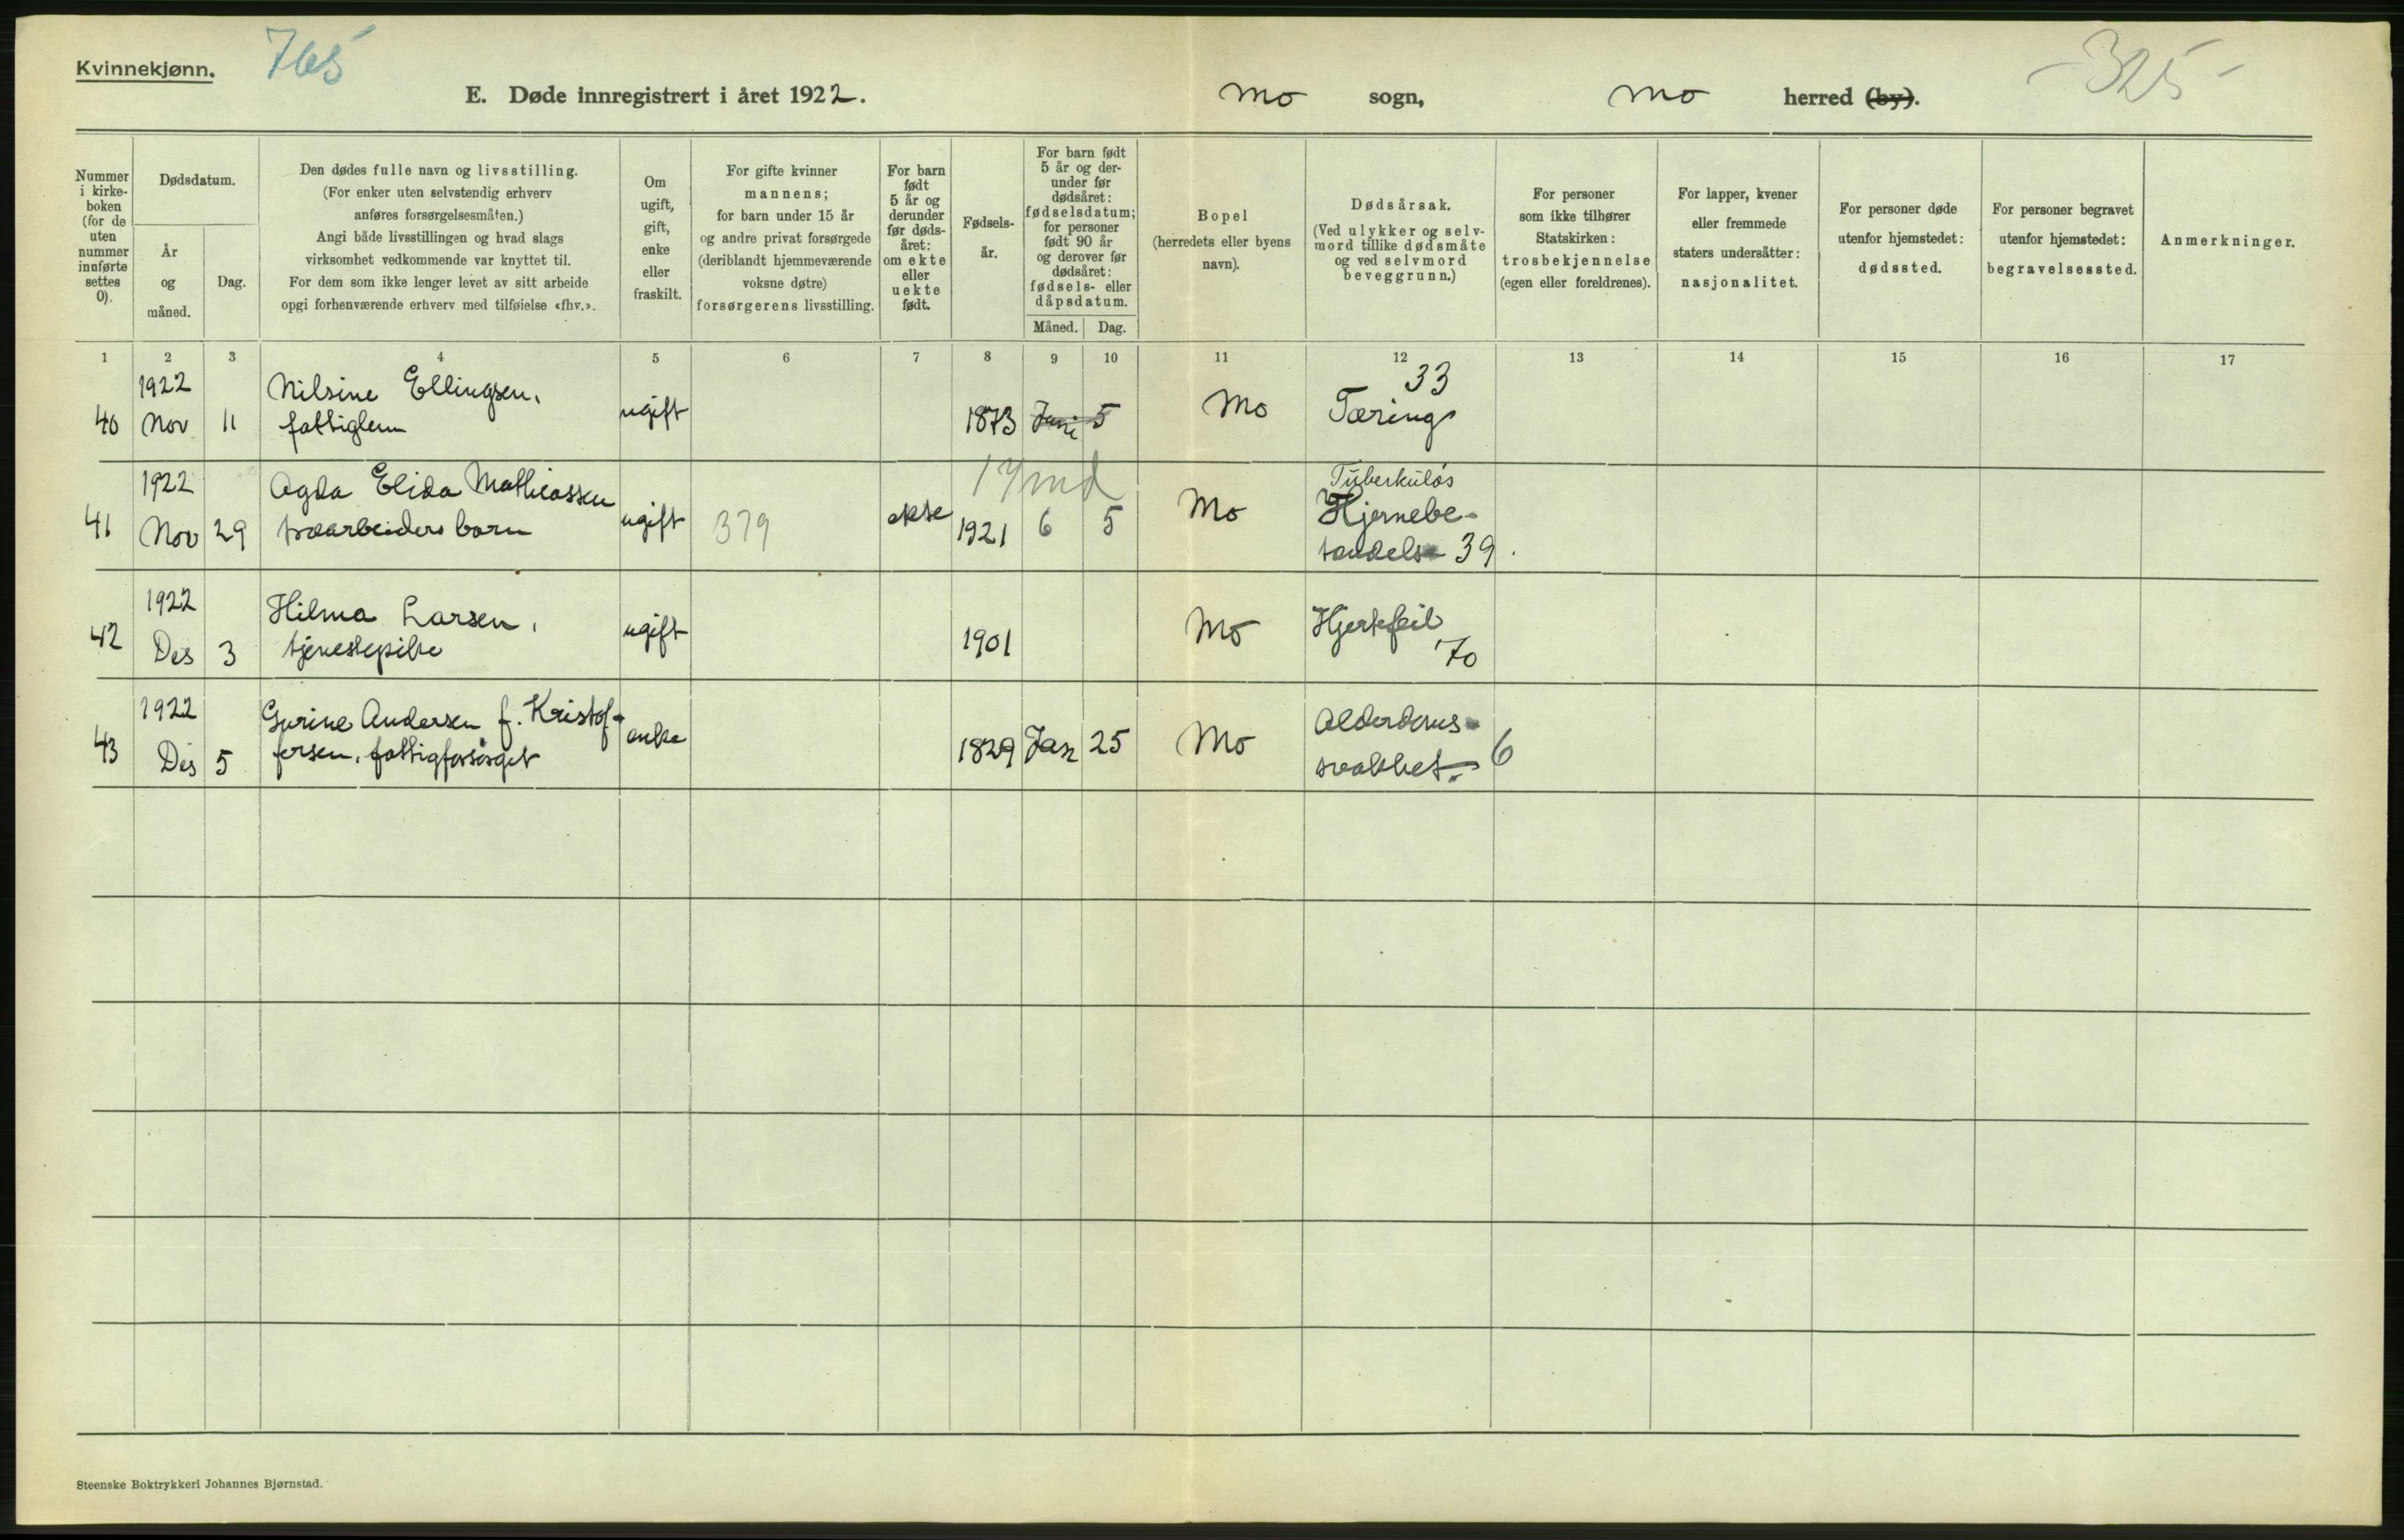 Kvinnekjønn.
765
E. Døde innregistrert i året 1922.
Mo sogn,
Mo herred (by).
-325-
Nummer
i kirke-
boken
(for de
uten
nummer
innførte
settes
0).
Dødsdatum.
År
og
måned.
Dag.
Den dødes fulle navn og livsstilling.
(For enker uten selvstendig erhverv
anføres forsørgelsesmåten.)
Angi både livsstillingen og hvad slags
virksomhet vedkommende var knyttet til.
For dem som ikke lenger levet av sitt arbeide
opgi forhenværende erhverv med tilføielse «fhv.».
Om
ugift,
gift,
enke
eller
fraskilt.
For gifte kvinner
mannens;
for barn under 15 år
og andre privat forsørgede
(deriblandt hjemmeværende
voksne døtre)
forsørgerens livsstilling.
For barn
født
5 år og
derunder
før døds-
året:
om ekte
eller
uekte
født.
Fødsels-
år.
For barn født
5 år og der-
under før
dødsåret:
fødselsdatum;
for personer
født 90 år
og derover før
dødsåret:
fødsels- eller
dåpsdatum.
Måned. Dag.
Bopel
(herredets eller byens
navn).
Dødsårsak.
(Ved ulykker og selv-
mord tillike dødsmåte
og ved selvmord
beveggrunn.)
For personer
som ikke tilhører
Statskirken:
trosbekjennelse
(egen eller foreldrenes).
For lapper, kvener
eller fremmede
staters undersåtter:
nasjonalitet.
For personer døde
utenfor hjemstedet:
dødssted.
For personer begravet
utenfor hjemstedet:
begravelsessted.
Anmerkninger.
1 2 3 4 5 6 7 8 9 10 11 12 13 14 15 16 17
1922 Nilsine Ellingsen, 33
40 Nov 11 fattiglem ugift 1873 Juni 5 Mo Tæring
1922 Agda Elida Mathiassen 17 md Tuberkuløs
41 Nov 29 træarbeiders barn ugift 379 ekte 1921 6 5 Mo Hjernebe-
tændelse 39.
1922 Hilma Larsen, Hjertefeil
42 Des 3 tjenestepike ugift 1901 Mo 70
1922 Gurine Andersen f. Kristof- Alderdoms-
43 Des 5 fersen, fattigforsørget enke 1829 Jan 25 Mo svakhet. 6
Steenske Boktrykkeri Johannes Bjørnstad.